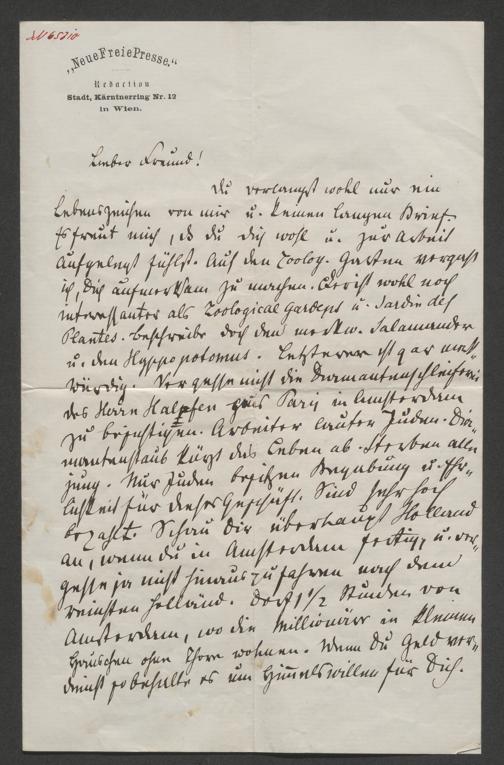 „NeueFreiePresse."
Redaction
Stadt, Kärntnerring Nr. 12
in Wien.
Lieber Freund!
Du verlangst wohl nur ein
Lebenszeichen von mir u. keinen langen Brief.
Es freut mich, daß du dich wohl u. zur Arbeit
aufgelegt fühlst. Auf den Zoolog. Garten vergaß
ich, Dich aufmerksam zu machen. Er ist wohl noch
interessanter als Zoological Gardens u. Jardin des
Plantes. Beschreibe doch den merkw. Salamander
u. den Hyppopotamus. Letzterer ist gar merk-
würdig. Vergesse nicht die Diamantenschleiferei
des Herrn Halpfen aus Paris in Amsterdam
zu besichtigen. Arbeiter lauter Juden. Dia-
mantenstaub kürzt das Leben ab. Sterben alle
jung. Nur Juden besitzen Begabung u. Ehr-
lichkeit für dieses Geschäft. Sind sehr hoch
bezahlt. Schau Dir überhaupt Holland
an, wenn du in Amsterdam fertig, u. ver-
gesse ja nicht hinauszufahren nach dem
reinsten holländ. Dorf 1½ Stunden von
Amsterdam, wo die Millionäre in kleinen
Häuschen ohne Thore wohnen. Wenn Du Geld ver-
dienst so behalte es um Himmelswillen für Dich.